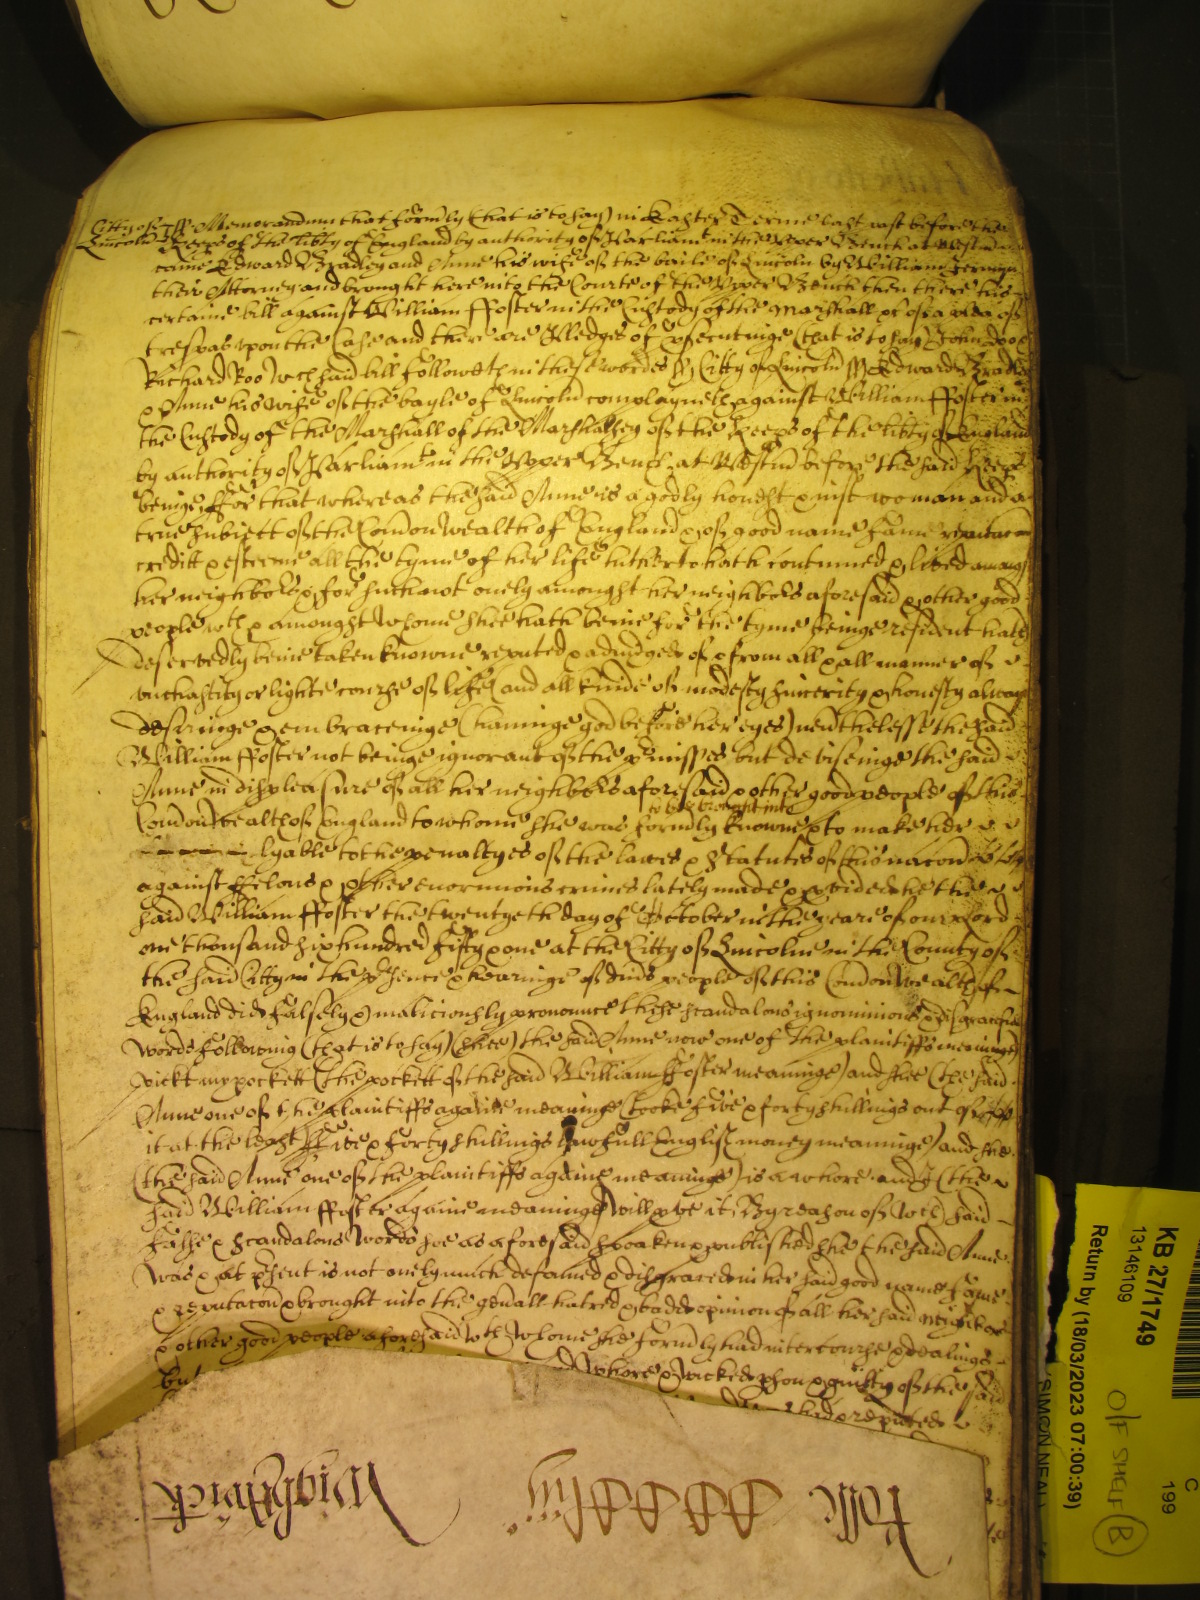 Citty of ss Memorandum that formly (that is to say) in Easter Terme last past before the
Lincoln Keeps of the libty of England by authority of Parliamt in the Upper Bench at Westm
came Edward Bradley and Anne his wife of the baile of Lincoln by William
their Attorney and brought here into the Courte of the Upper Bench then there his
certaine bill against William ffoster in the Custody of the Marshall &c of a plea of
trespas upon the Case and there are Pledges of psecutinge (that is to say) John Doo
Richard Roo wch said bill followeth in these wordes ss Citty of Lincoln ss Edward Bradley
& Anne his wife of the bayle of Lincoln complayneth against William ffoster in
the Custody of the Marshall of the Marshalsey of the Keeps of the libty of England
by authority of Parliamt in the Upper Bench at Westm before the said Keeps
beinge ffor that whereas the said Anne is a godly honest & iust woman and a
true subiect of the Comon Wealth of England & of good name fame reputacon
creditt & esteeme all the tyme of her life hitherto hath contynued & lived amongst
her neighbors & for such not onely amongst her neighbors aforesaid & other good
people wth & amongst whome shee hath beene for the tyme beinge resident hath
deservedly beene taken knowne reputed & adiudged of & from all & all manner of
unchastity or lighte course of life (and all kinde of modesty sincerity & honesty alwayes
desiringe & embraceinge (haveinge god before her eyes) nevthelesse the said
William ffoster not beinge ignorant of the pmisses but deviseinge the said
Anne in displeasure of all her neighbors aforesaid & other good people of this
to bee brought into
Comon Wealth of England to whome she was formly knowne & to make her
lyable to the penaltyes of the lawes & Statutes of this nacon
against ffelons & other enormious crimes lately made & pvided he the
said William ffoster the twentyeth day of October in the yeare of our Lord
one thousand six hundred fifty & one at the Citty of Lincolne in the County of
the said Citty in the psence & hearinge of divs people of this Comon Wealth of
England did falsely & maliciously pronounce these scandalous ignominious & disgracefull
words followinge (that is to say) (shee) (the said Anne now one of the plaintiffs meaninge)
pickt my pockett (the pockett of the said William ffoster meaninge) and shee (the said
Anne one of the plaintiffs againe meaninge) tooke five & forty shillings out of
it at the least (ffive & forty shillings lawfull English money meaninge) and she
(the said Anne one of the plaintiffs againe meaninge) is a whore and I (the
said William ffoster againe meaninge) will pve it; By reason of wch said
false & scandalous words soe as aforesaid spoaken & published she the said Anne
was & at psent is not onely much defamed & disgraced in her said good name fame
& reputacon & brought into the genall hatred & badd opinion of all her said neighbors
& other good people aforesaid wth whome she formly had intercourse & dealings
but whore & wicked pson & guilty of the said
had & reputed
Rolle
Wightwick
KB 27/1749
13146109
Return by (18/03/2023 07:00:39)
C
199
(SIMON NEAL)
O/F SHELF B